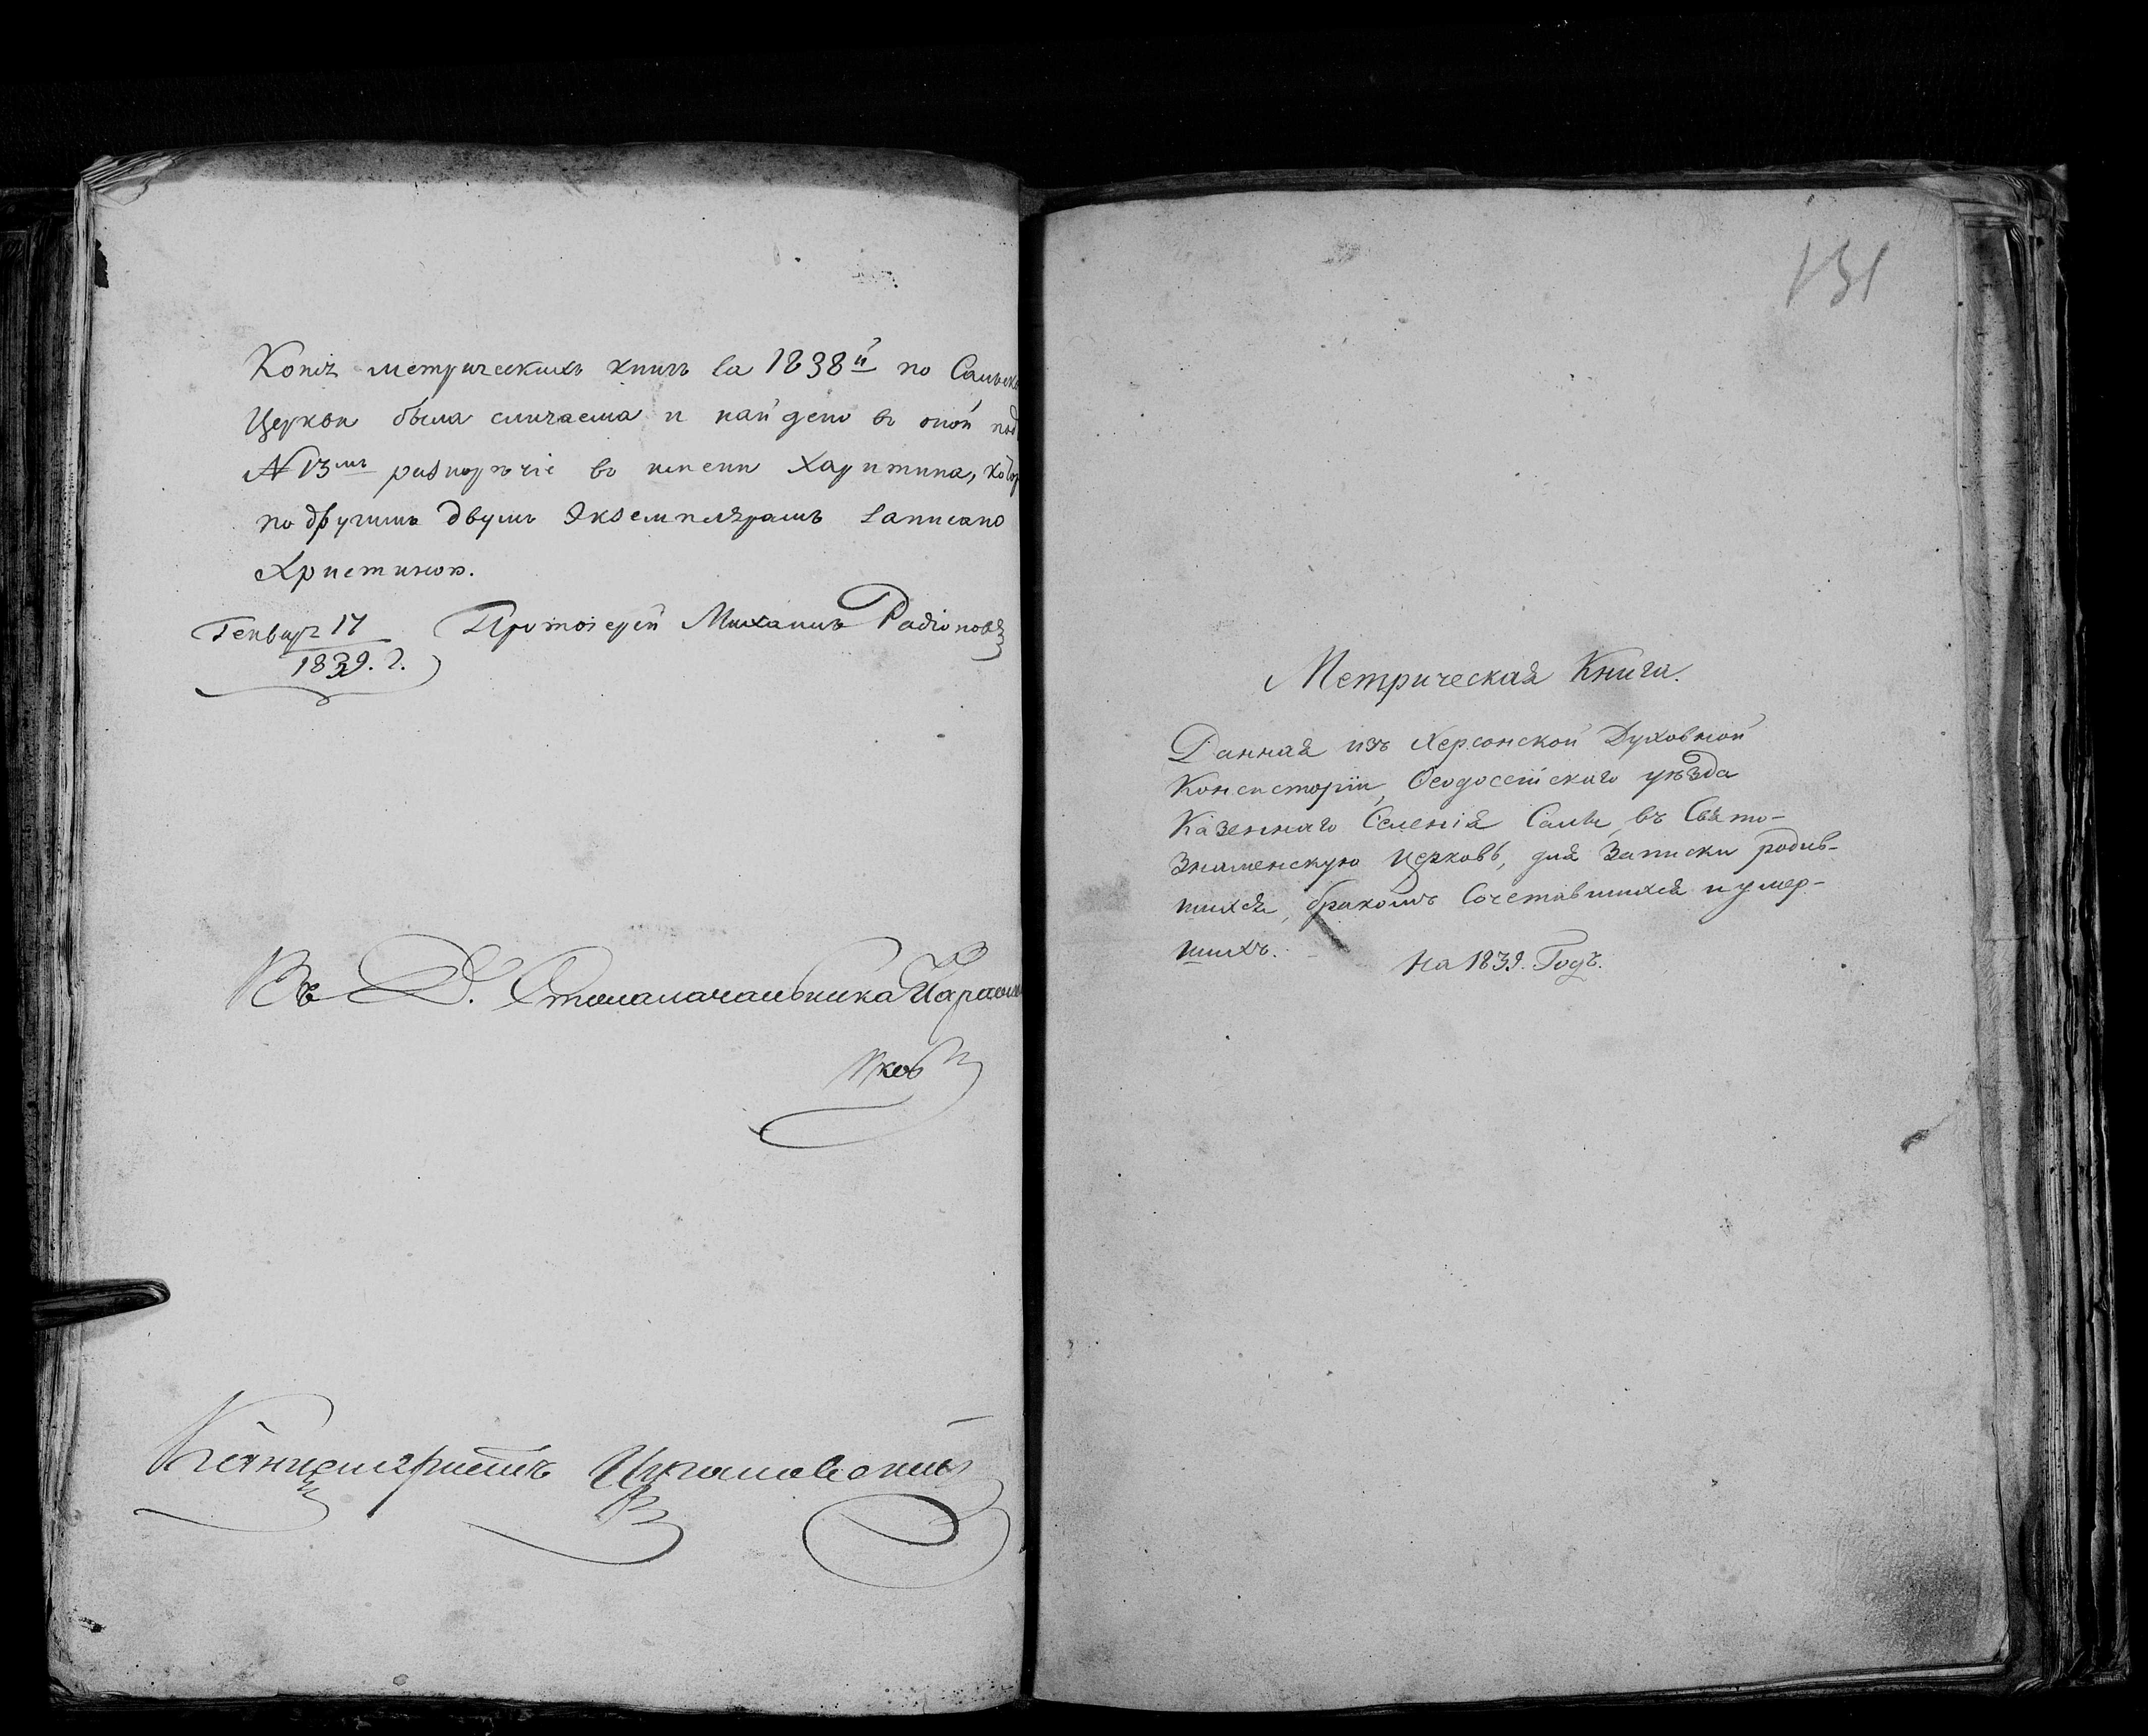 Копія метрическихъ книгъ за 1838й по Сальск
Церкви была сличаема и найдено въ оной под
N 13мъ разнорѣчіе во имени Харитина, котор
по другимъ двумъ Экземплярамъ записано
Христиною.
Генваря 17 Протоіерей Михаилъ Радіоновъ
1839. г.
Въ Д. Столоначальника
ковъ
Канцеляристъ
131
Метрическая Книга.
Данная изъ Херсонской Духовной
Консисторіи, Ѳеодосійскаго уѣзда
Казеннаго Селенія Салы, въ Свято-
Знаменскую церковь, для Записки родив-
шихся, бракомъ Сочетавшихся и умер-
шихъ.
На 1839. Годъ.